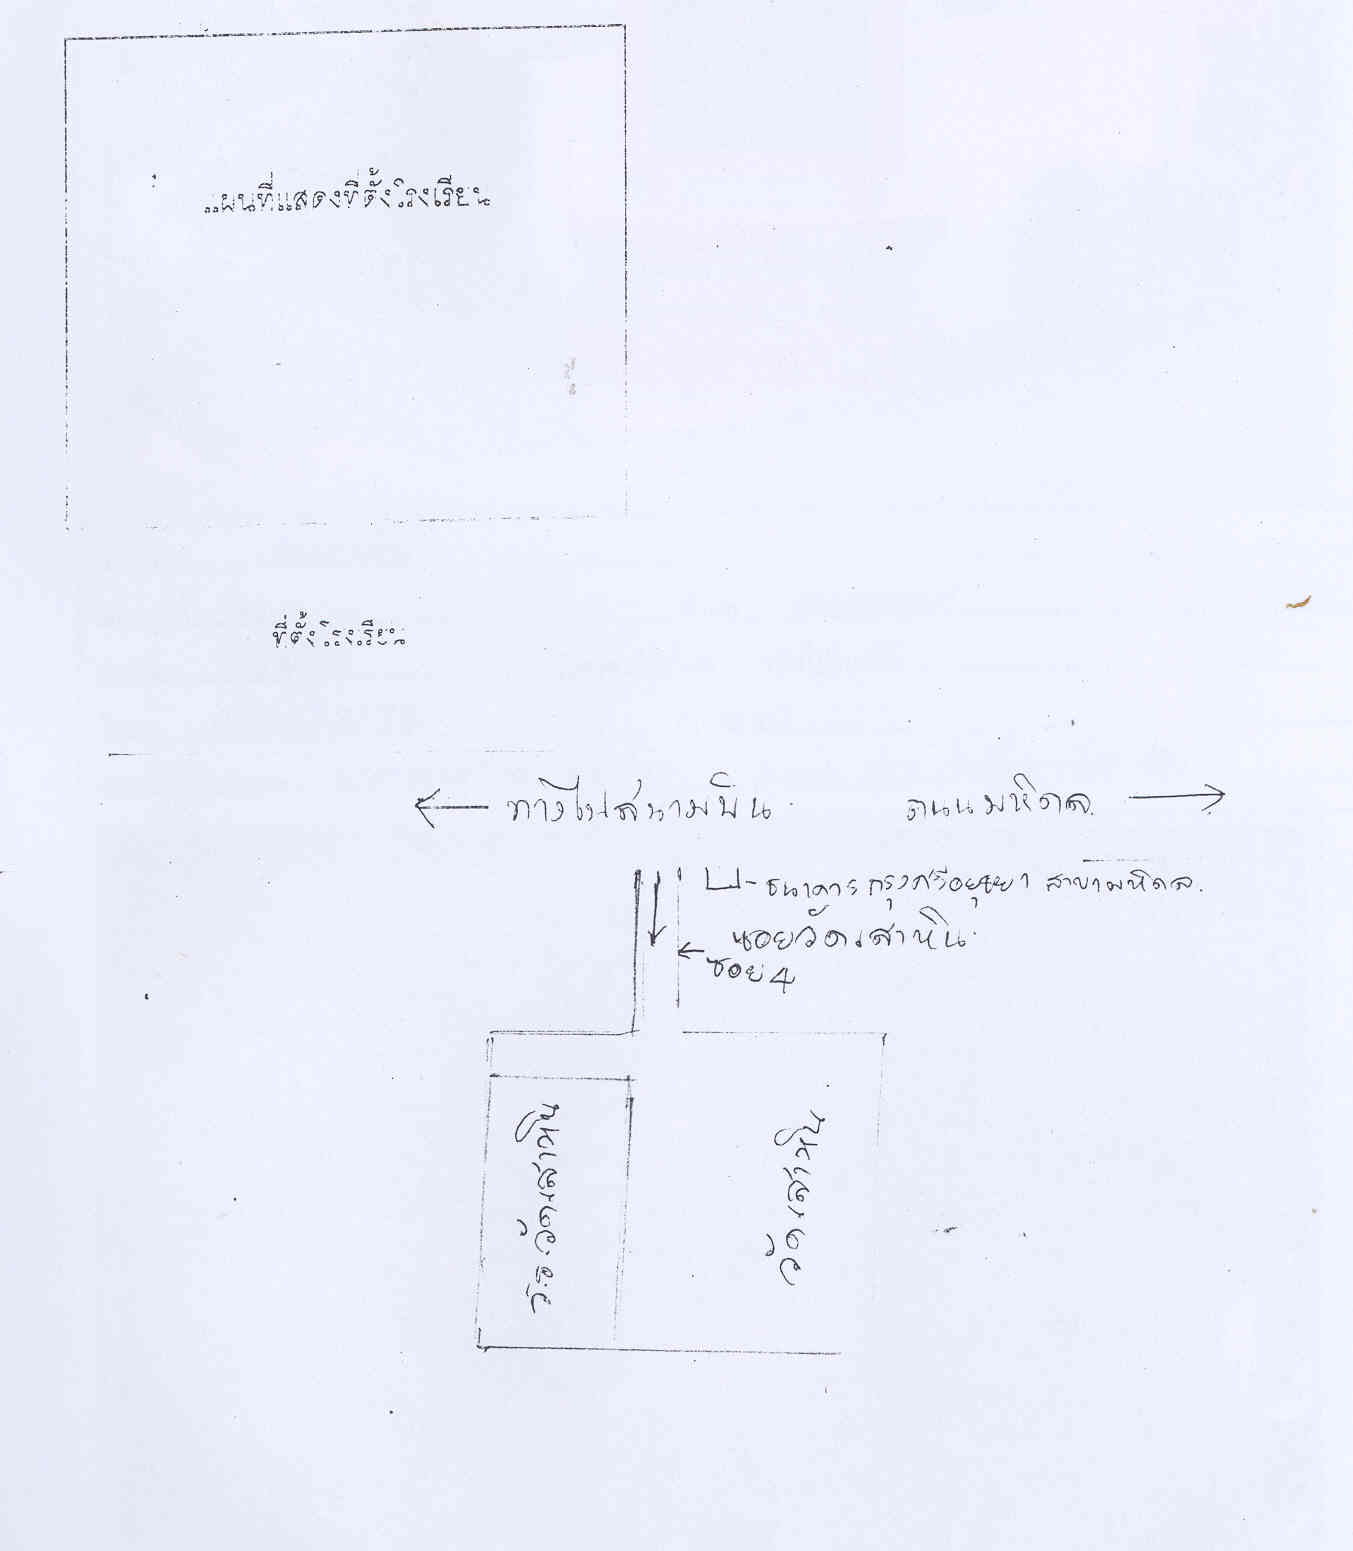 แผนที่แสดงที่ตั้งโรงเรียน
ที่ตั้งโรงเรียน
ทางไปสนามบิน ถนนมหิดล
ธนาคารกรุงศรีอยุธยา สาขามหิดล
ซอยวัดเสาหิน
ซอย 4
ร.ร.วัดเสาหิน
วัดเสาหิน